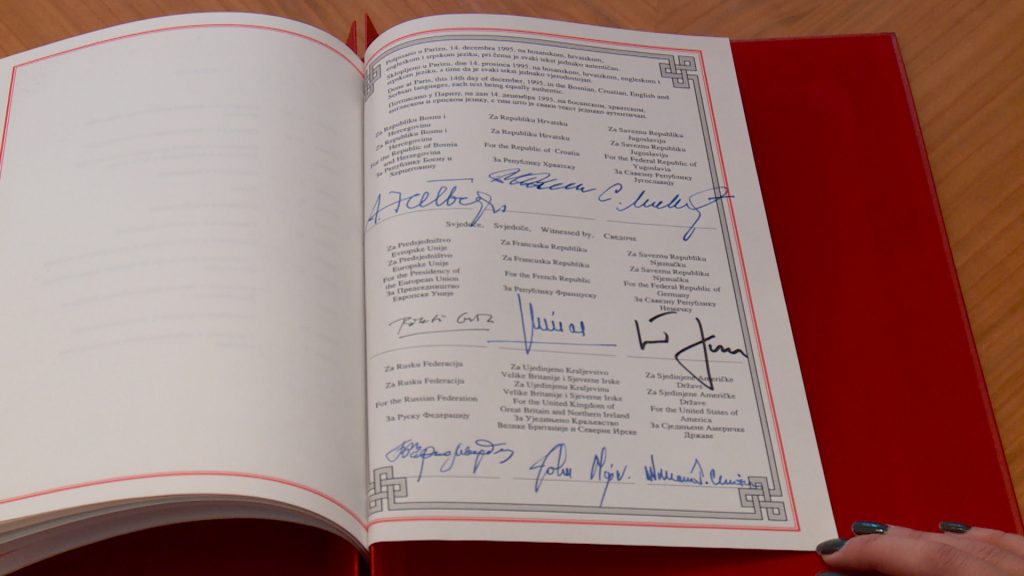 Potpisano u Parizu, 14. decembra 1995, na bosanskom, hrvatskom,
engleskom i srpskom jeziku, pri čemu je svaki tekst jednako autentičan.
Sklopljeno u Parizu, dne 14. prosinca 1995. na bosanskom, hrvatskom, engleskom i
srpskom jeziku, s tim da je svaki tekst jednako vjerodostojan.
Done at Paris, this 14th day of december, 1995, in the Bosnian, Croatian, English and
Serbian languages, each text being equally authentic.
Потписано у Паризу, на дан 14. децембра 1995, на босанском, хрватском,
енглеском и српском језику, с тим што је сваки текст једнако аутентичан.
Za Republiku Bosnu i
Hercegovinu
Za Republiku Bosnu i
Hercegovinu
For the Republic of Bosnia
and Herzegovina
За Републику Босну и
Херцеговину
Za Republiku Hrvatsku
Za Republiku Hrvatsku
For the Republic of Croatia
За Републику Хрватску
Za Saveznu Republiku
Jugoslaviju
Za Saveznu Republiku
Jugoslaviju
For the Federal Republic of
Yugoslavia
За Савезну Републику
Југославију
Svjedoče, Svjedoče, Witnessed by, Сведоче
Za Predsjedništvo
Evropske Unije
Za Predsjedništvo
Europske Unije
For the Presidency of
the European Union
За Председништво
Европске Уније
Za Francusku Republiku
Za Francusku Republiku
For the French Republic
За Републику Француску
Za Saveznu Republiku
Njemačku
Za Saveznu Republiku
Njemačku
For the Federal Republic of
Germany
За Савезну Републику
Немачку
Za Rusku Federaciju
Za Rusku Federaciju
For the Russian Federation
За Руску Федерацију
Za Ujedinjeno Kraljevstvo
Velike Britanije i Sjeverne Irske
Za Ujedinjenu Kraljevinu
Velike Britanije i Sjeverne Irske
For the United Kingdom of
Great Britain and Northern Ireland
За Уједињено Краљевство
Велике Британије и Северне Ирске
Za Sjedinjene Američke
Države
Za Sjedinjene Američke
Države
For the United States of
America
За Сједињене Америчке
Државе
John Major